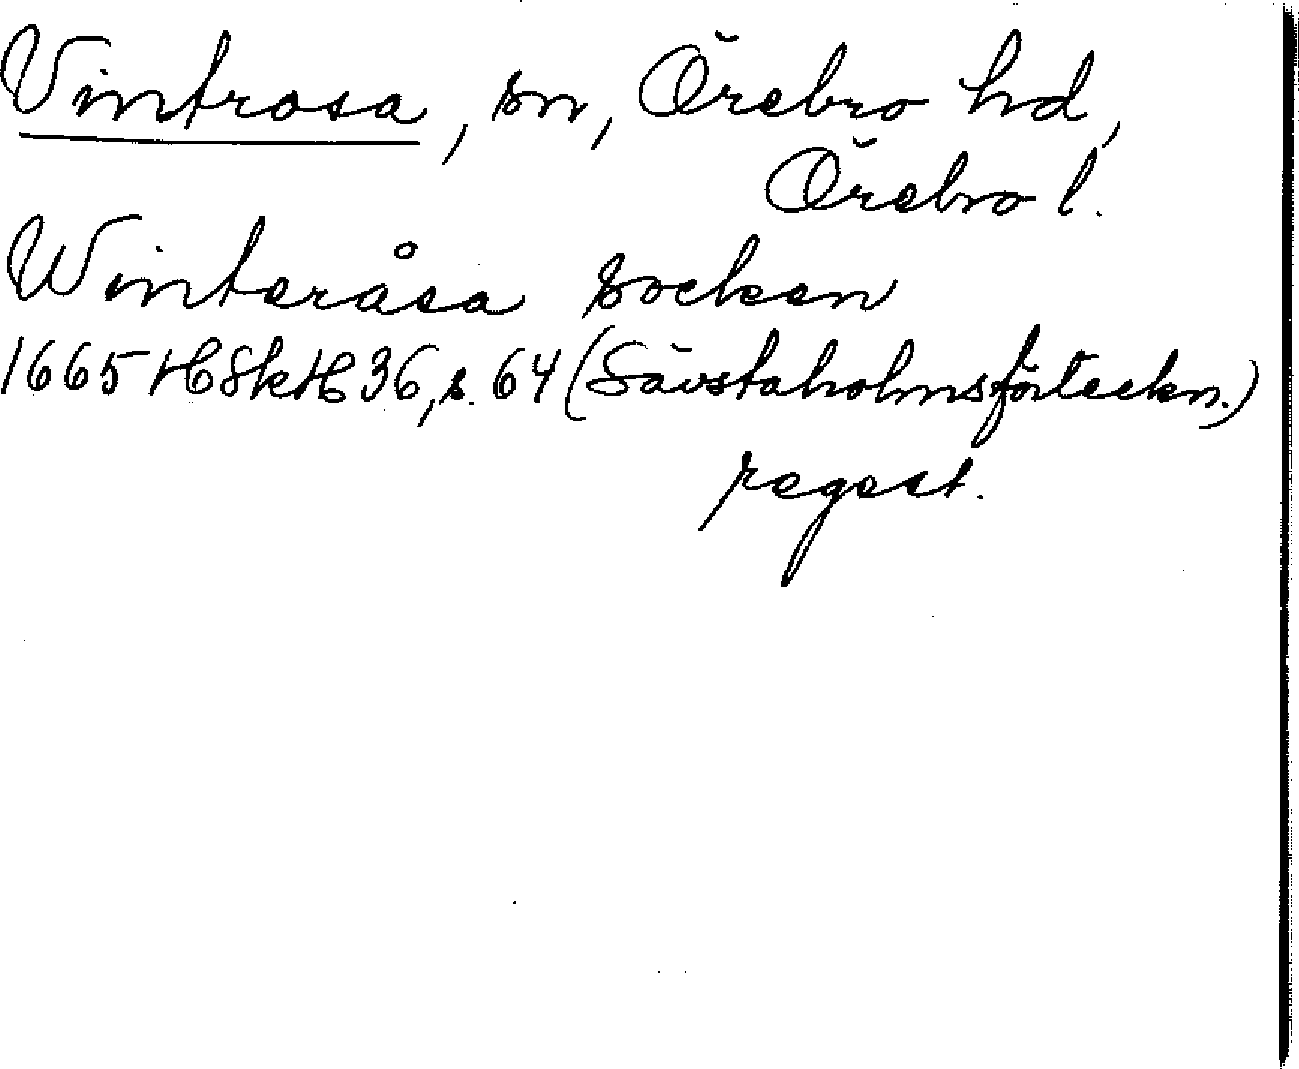 Vintrosa, sn, Örebro hd,
Örebro l.
Winteråsa socken
1665 HSkH 36, s. 64 (Sävstaholmsförteckn.)
regest.